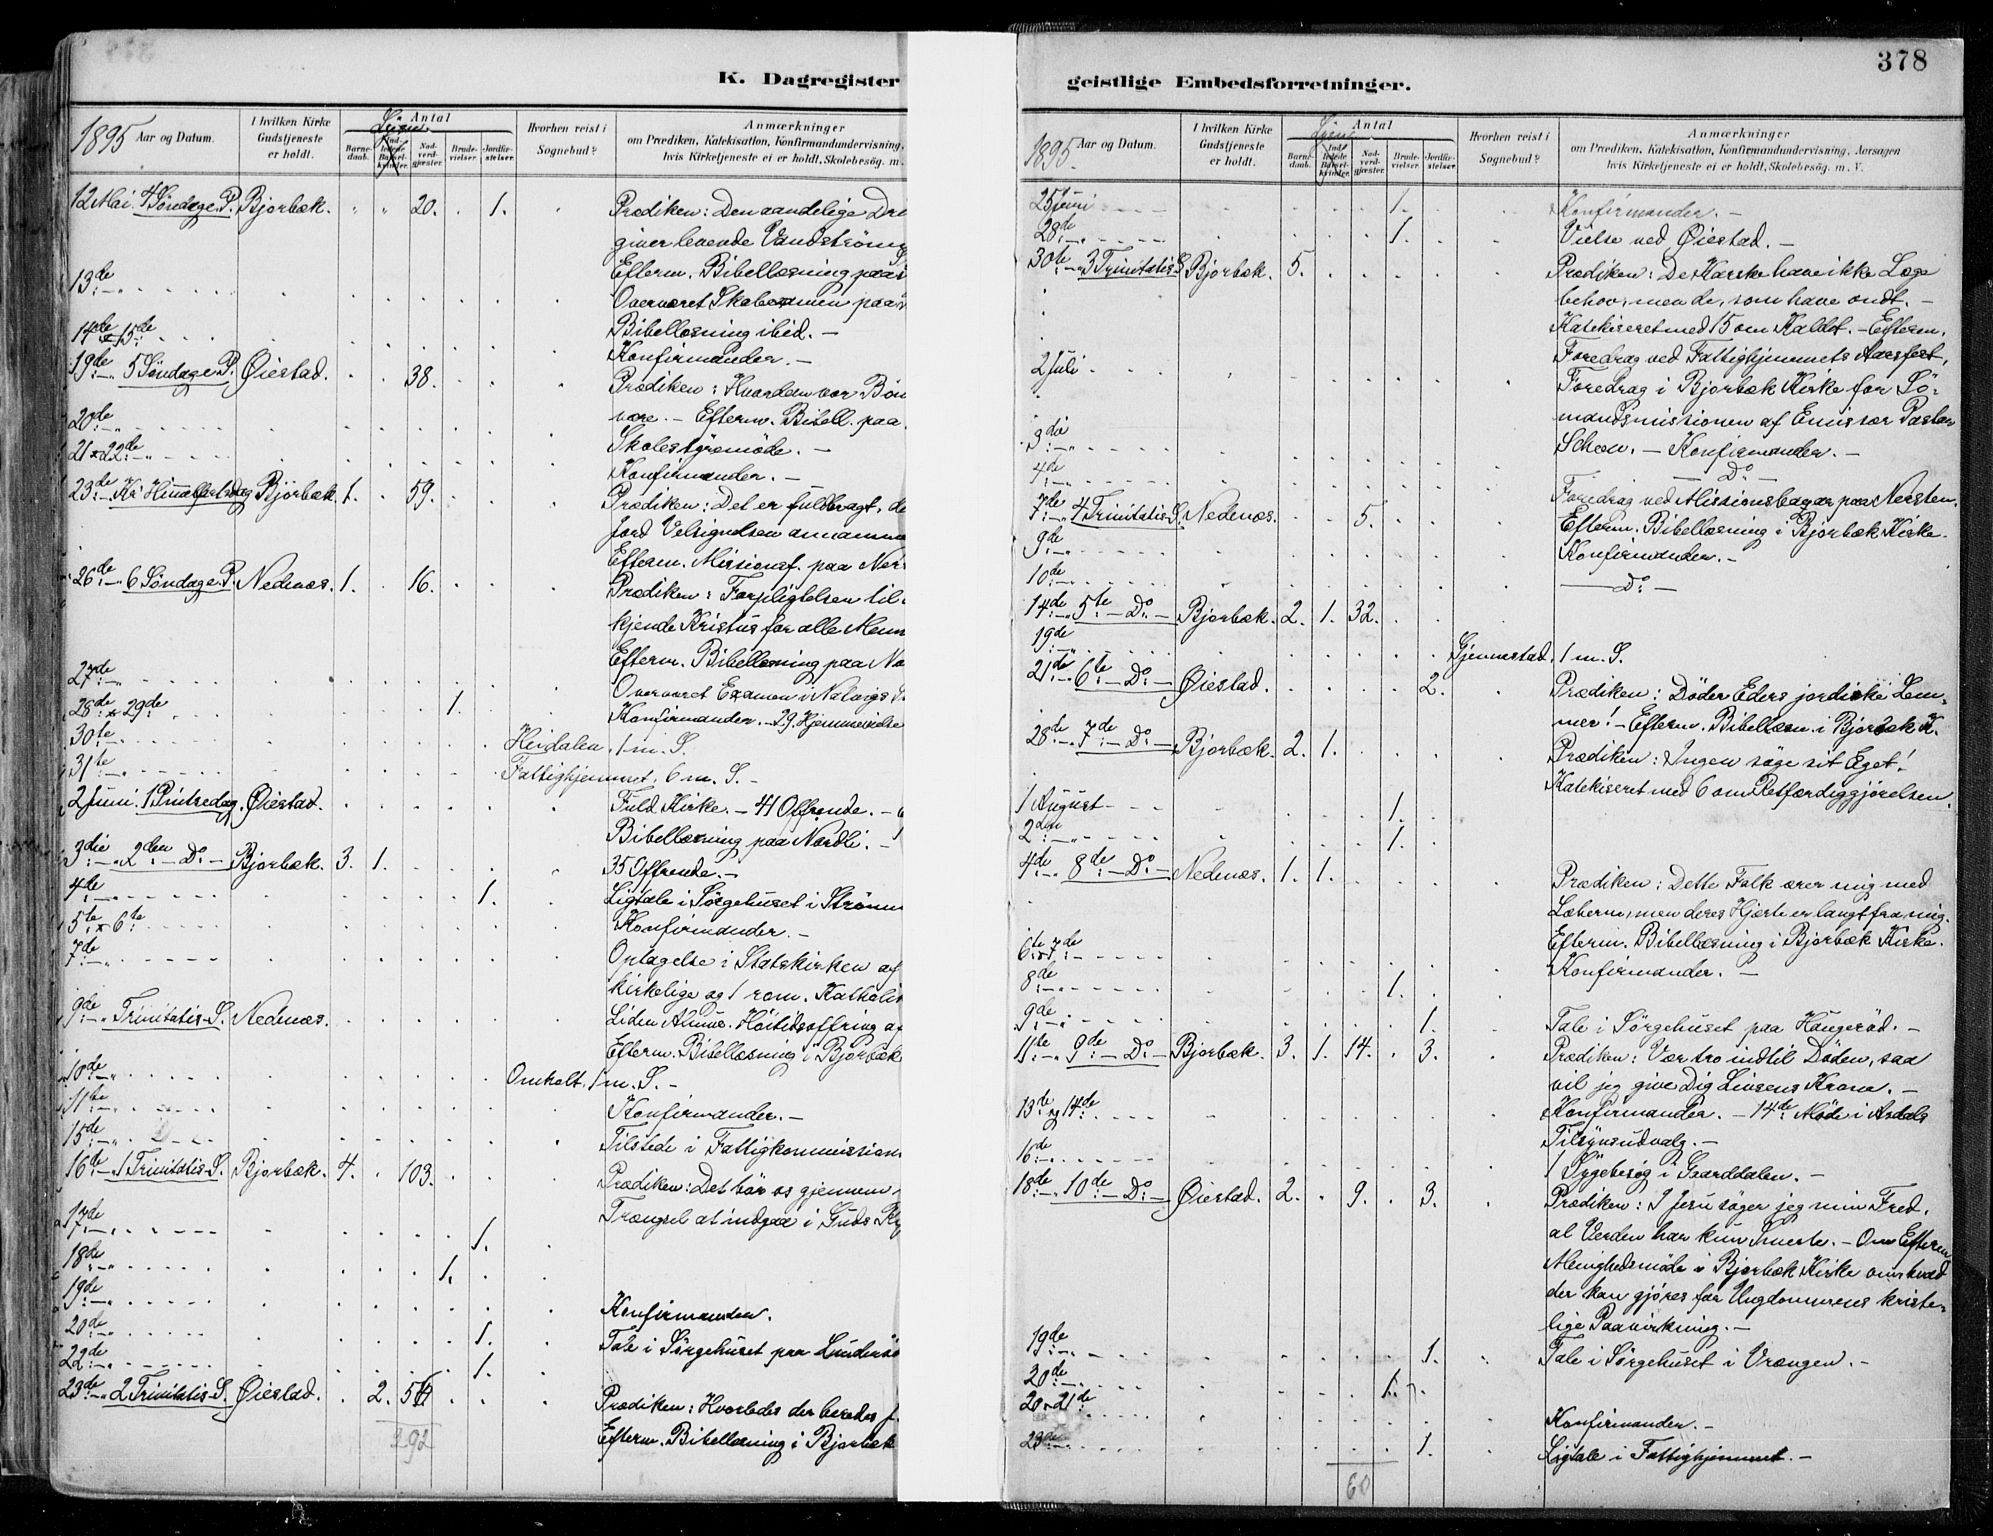 K. Dagregister
1895 Aar og Datum.
I hvilken Kirke Gudstjeneste er holdt.
Antal
Barnedaab. Indledede Barselkvinder. Nadverdgjæster. Brudevielser. Jordfæstelser.
Hvorhen reist i Sognebud?
Anmærkninger
om Prædiken, Katekisation, Konfirmandundervisning,
hvis Kirketjeneste ei er holdt, Skolebesøg. m.
12 Mai. 4 Søndag e. P. Bjorbæk. " " 20. . 1. Prædiken: Den aandelige
giver levende Vandstrømme
13de Efterm. Bibellæsning paa
Overværet Skoleexamen paa
14de & 15de Bibellæsning ibid. –
Konfirmander. –
19de 5 Søndag e. P. Øiestad. 38. Prædiken: Hvordan vor
være. – Efterm. Bibell. paa
20de Skolestyremøde. –
21 & 22de Konfirmander. –
23de Kr. Himmelfartsdag Bjorbæk 1. 59. Prædiken: Det er fuldbragt, de
ford Velsignelsen annamme
Efterm. Missionsf. paa Ner
26de 6 Søndag e. P. Nedenæs. 1. 16. Prædiken: Forpligtelsen til
kjende Kristus for alle Menn
Efterm. Bibellæsning paa
27de Overværet Examen i
28de & 29de 1. Konfirmander. – 29. Hjemmevielse
30te Heidalen. 1 m. S.
31te Fattighjemmet. 6 m. S. –
2 Juni. 1 Pintsedag. Øiestad. Fuld Kirke. – 41 Offrende. –
Bibellæsning paa Nordli. –
3die 2den Do – Bjorbæk. 3. 1. 35 Offrende. –
4de 1. Ligtale i Sørgehuset i
5te & 6te Konfirmander. –
7de Optagelse i Statskirken af
kirkelige og 1 rom. Katholi
9de Trinitatis S. Nedenæs. Høitidsoffring af
Efterm. Bibellæsning i Bjorbæk
10de Omholt. 1 m. S. –
11te Konfirmander. –
15de Tilstede i Fattigkommission
16de 1 Trinitatis S. Bjorbæk. 4. 103. Prædiken: Det bør os gjennem
Trængsel at indgaa i Guds
17de 1.
18de 1.
19de Konfirmander.
20de 1. Tale i Sørgehuset paa
22de 1.
23de 2 Trinitatis S. Øiestad. 2. 56 Prædiken: Hvorledes der beredes
Efterm. Bibellæsning i Bjorbæk
292
378
geistlige Embedsforretninger.
1895. Aar og Datum.
I hvilken Kirke Gudstjeneste er holdt.
Antal
Barnedaab. Indledede Barselkvinder. Nadverdgjæster. Brudevielser. Jordfæstelser.
Hvorhen reist i Sognebud?
Anmærkninger
om Prædiken, Katekisation, Konfirmandundervisning, Aarsagen
hvis Kirketjeneste ei er holdt, Skolebesøg. m. V.
25 Juni 1. Konfirmander. –
28de 1. Vielse ved Øiestad. –
30te 3 Trinitatis S. Bjorbæk. 5. Prædiken: De Karske have ikke Læge
behov, men de, som have ondt. –
Katekiseret med 15 om Kaldet. – Efterm.
Foredrag ved Fattighjemmets Aarsfest.
2 Juli Foredrag i Bjorbæk Kirke for Sø-
mandsmissionen af Emissær Pastor
3die – Konfirmander. –
4de – Do –
Foredrag ved Missionsbazar paa Nersten.
7de 4 Trinitatis S. Nedenæs. 5. Efterm. Bibellæsning i Bjorbæk Kirke.
9de Konfirmander. –
10de – Do –
14de 5te Do – Bjorbæk. 2. 1. 32.
19de Gjennestad. 1 m. S.
21de 6te – Do – Øiestad. 2. Prædiken: Døder Eders jordiske Lem-
mer! – Efterm. Bibellæsn. i Bjorbæk K.
28de 7de – Do – Bjorbæk. 2. 1. Prædiken: Ingen søge sit Eget!
Katekiseret med 6 om Retfærdiggjørelsen.
1 August 1.
2den 1.
4de 8de – Do – Nedenæs. 1. 1. Prædiken: Dette Folk ærer mig med
Læberne, men deres Hjerte er langt fra mig.
Efterm. Bibellæsning i Bjorbæk Kirke.
6te & 7de Konfirmander. –
8de 1.
9de 1. Tale i Sørgehuset paa Haugerød. –
11te 9de – Do – Bjorbæk. 3. 1. 14. 3. Prædiken: Vær tro indtil Døden, saa
vil jeg give Dig Livsens Krone. –
13de og 14de Konfirmander. – 14de Møde i Asdals
Tilsynsudvalg. –
16de 1 Sygebesøg i Gaarddalen. –
18de 10de – Do – Øiestad. 2. " 9. 3. Prædiken: I Jesu søger jeg min Fred,
al Verden har kun Smerte. – Efterm
Menighedsmøde i Bjorbæk Kirke om hvad
der kan gjøres for Ungdommens kriste-
lige Paavirkning. –
19de 1. Tale i Sørgehuset i Vrængen. –
20de 1.
20 & 21de Konfirmander. –
23de 1. Ligtale i Fattighjemmet. –
60